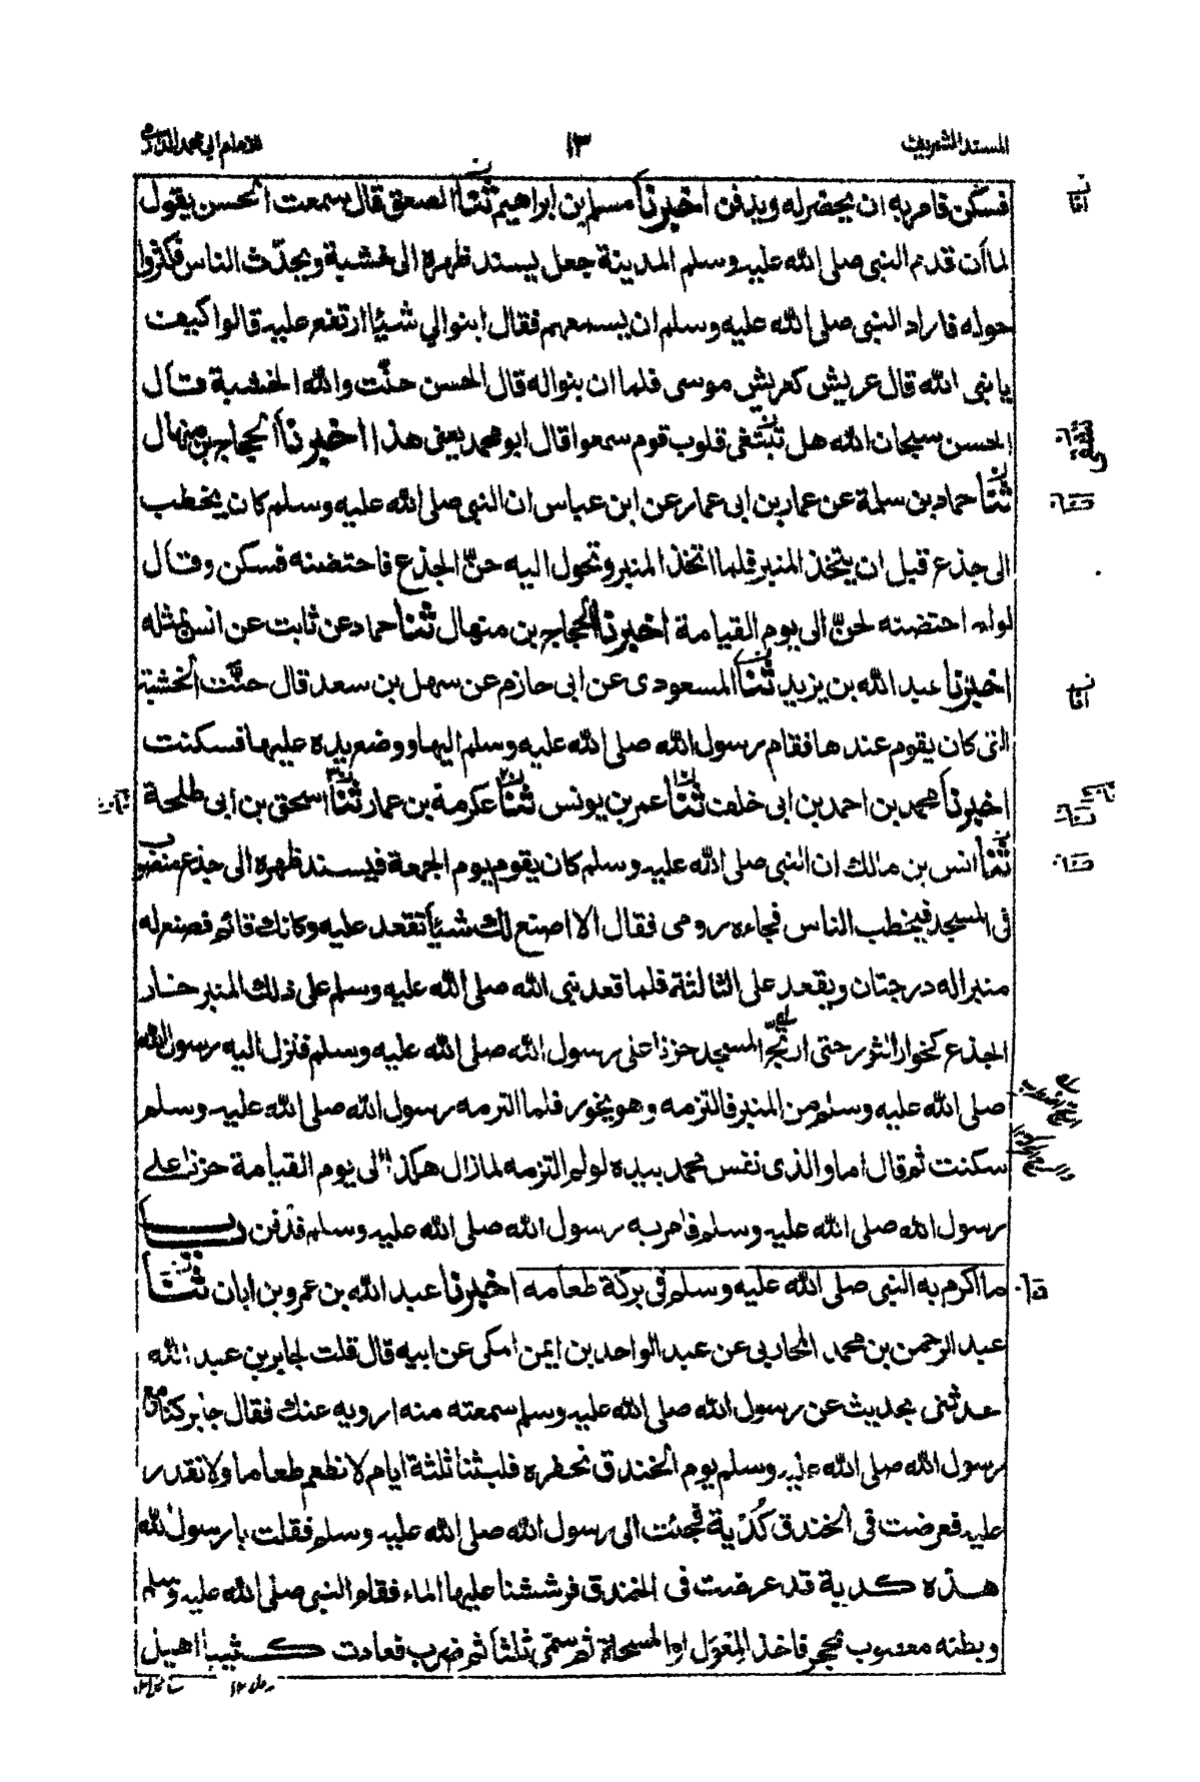 المسند الشريف ١٣ للامام ابي محمد الدارمي
فسكن فامر به ان يحضر له ويدفن اخبرنا مسلم بن ابراهيم ثنا الصعق قال سمعت الحسن يقول
لما أن قدم النبي صلى الله عليه وسلم المدينة جعل يسند ظهره الى خشبة ويحدّث الناس فكثروا
حوله فاراد النبي صلى الله عليه وسلم ان يسمعهم فقال ابنوا لي شيئا ارتفع عليه قالوا كيف
يا نبي الله قال عريش كعريش موسى فلما ان بنوا له قال الحسن حنّت والله الخشبة قال
الحسن سبحان الله هل تبتغى قلوب قوم سمعوا قال ابو محمد يعنى هذا اخبرنا الحجاج بن منهال
ثنا حماد بن سلمة عن عمار بن ابى عمار عن ابن عباس ان النبي صلى الله عليه وسلم كان يخطب
الى جذع قبل ان يتخذ المنبر فلما اتخذ المنبر وتحول اليه حنّ الجذع فاحتضنه فسكن وقال
لو لم احتضنه لحنّ الى يوم القيامة اخبرنا الحجاج بن منهال ثنا حماد عن ثابت عن انس بمثله
اخبرنا عبد الله بن يزيد ثنا المسعودى عن ابى حازم عن سهل بن سعد قال حنّت الخشبة
التى كان يقوم عندها فقام رسول الله صلى الله عليه وسلم اليها ووضع يده عليها فسكنت
اخبرنا محمد بن احمد بن ابى خلف ثنا عمر بن يونس ثنا عكرمة بن عمار ثنا اسحق بن ابى طلحة
ثنا انس بن مالك ان النبى صلى الله عليه وسلم كان يقوم يوم الجمعة فيسند ظهره الى جذع منصوب
فى المسجد فيخطب الناس فجاءه رومى فقال الا اصنع لك شيئا تقعد عليه وكانك قائم فصنع له
منبرا له درجتان ويقعد على الثالثة فلما قعد نبى الله صلى الله عليه وسلم على ذلك المنبر خار
الجذع كخوار الثور حتى ارتجّ المسجد حزنا على رسول الله صلى الله عليه وسلم فنزل اليه رسول الله
صلى الله عليه وسلم من المنبر فالتزمه وهو يخور فلما التزمه رسول الله صلى الله عليه وسلم
سكنت ثم قال اما والذى نفس محمد بيده لو لم التزمه لما زال هكذا الى يوم القيامة حزنا على
رسول الله صلى الله عليه وسلم فامر به رسول الله صلى الله عليه وسلم فدفن باب
ما اكرم به النبى صلى الله عليه وسلم فى بركة طعامه اخبرنا عبد الله بن عمرو بن ابان ثنا
عبد الرحمن بن محمد المحاربى عن عبد الواحد بن ايمن المكى عن ابيه قال قلت لجابر بن عبد الله
حدثنى بحديث عن رسول الله صلى الله عليه وسلم سمعته منه ارويه عنك فقال جابر كنا مع
رسول الله صلى الله عليه وسلم يوم الخندق نحفره فلبثنا ثلثة ايام لا نطعم طعاما ولا نقدر
عليه فعرضت فى الخندق كُدْية فجئت الى رسول الله صلى الله عليه وسلم فقلت يا رسول الله
هذه كدية قد عرضت فى الخندق فرششنا عليها الماء فقام النبى صلى الله عليه وسلم
وبطنه معصوب بحجر فاخذ المِعْوَل او المسحاة ثم سمّى ثلثا ثم ضرب فعادت كثيبا اهيل